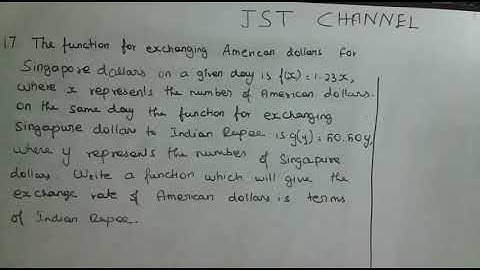 JST CHANNEL
17 The function for exchanging American dollars for
Singapore dollars on a given day is f(x) = 1.23x,
where x represents the number of American dollars.
on the same day the function for exchanging
Singapore dollar to Indian Rupee is g(y) = 50.50y,
where y represents the number of Singapore
dollars. Write a function which will give the
exchange rate of American dollars is terms
of Indian Rupee.